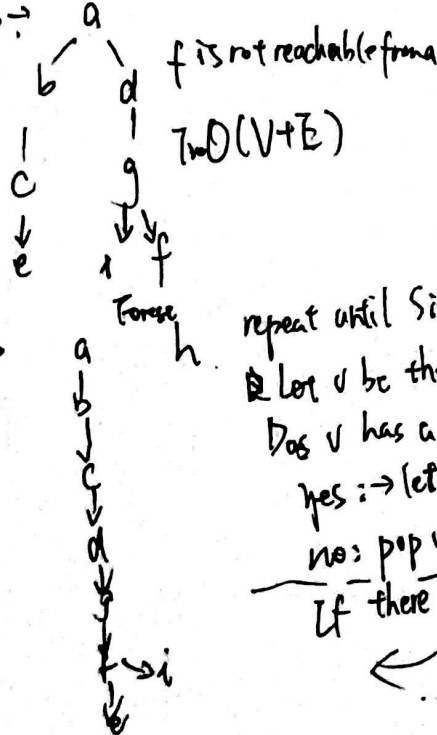 a
b d
f is not reachable from a
c g
O(V+E)
e i f
h
a
b
c
d
i
e
repeat until Si
Let v be the
Does v has a
yes: → let
no: pop v
If there